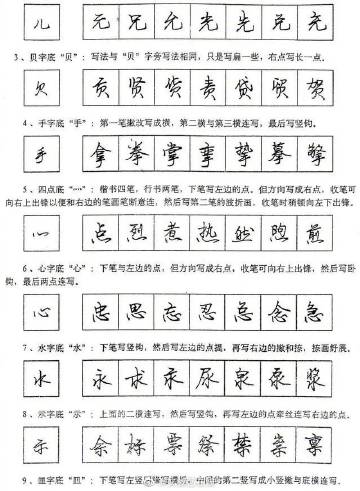 儿 元 兄 允 光 先 兑 充
3、贝字底“贝”：写法与“贝”字旁写法相同，只是写扁一些，右点写长一点。
贡 贤 货 责 贷 贸 贺
4、手字底“手”：第一笔撇改写成横，第二横与第三横连写，最后写竖钩。
手 拿 拳 掌 挛 挚 摹 擎
5、四点底“灬”：楷书四笔，行书两笔，下笔写左边的点。但方向写成右点，收笔可
向右上出锋以便和右边的笔画笔断意连，然后写第二笔的波折画，收笔时稍顿向左下出锋。
点 烈 煮 热 然 煦 煎
6、心字底“心”：下笔与左边的点，但方向写成右点，收笔可向右上出锋，然后写卧
钩，最后两点连写。
心 忠 思 忘 忍 总 念 急
7、水字底“水”：下笔写竖钩，然后写左边的点提，再写右边的撇和捺，捺画舒展。
水 永 求 汞 尿 泉 泵 浆
8、示字底“示”：上面的二横连写，然后写竖钩，再写左边的点牵丝连写右边的点。
示 余 标 票 祭 禁 崇 禀
9、皿字底“皿”：下笔写左竖后接写横折，中间的第二竖写成小竖撇与底横连写。